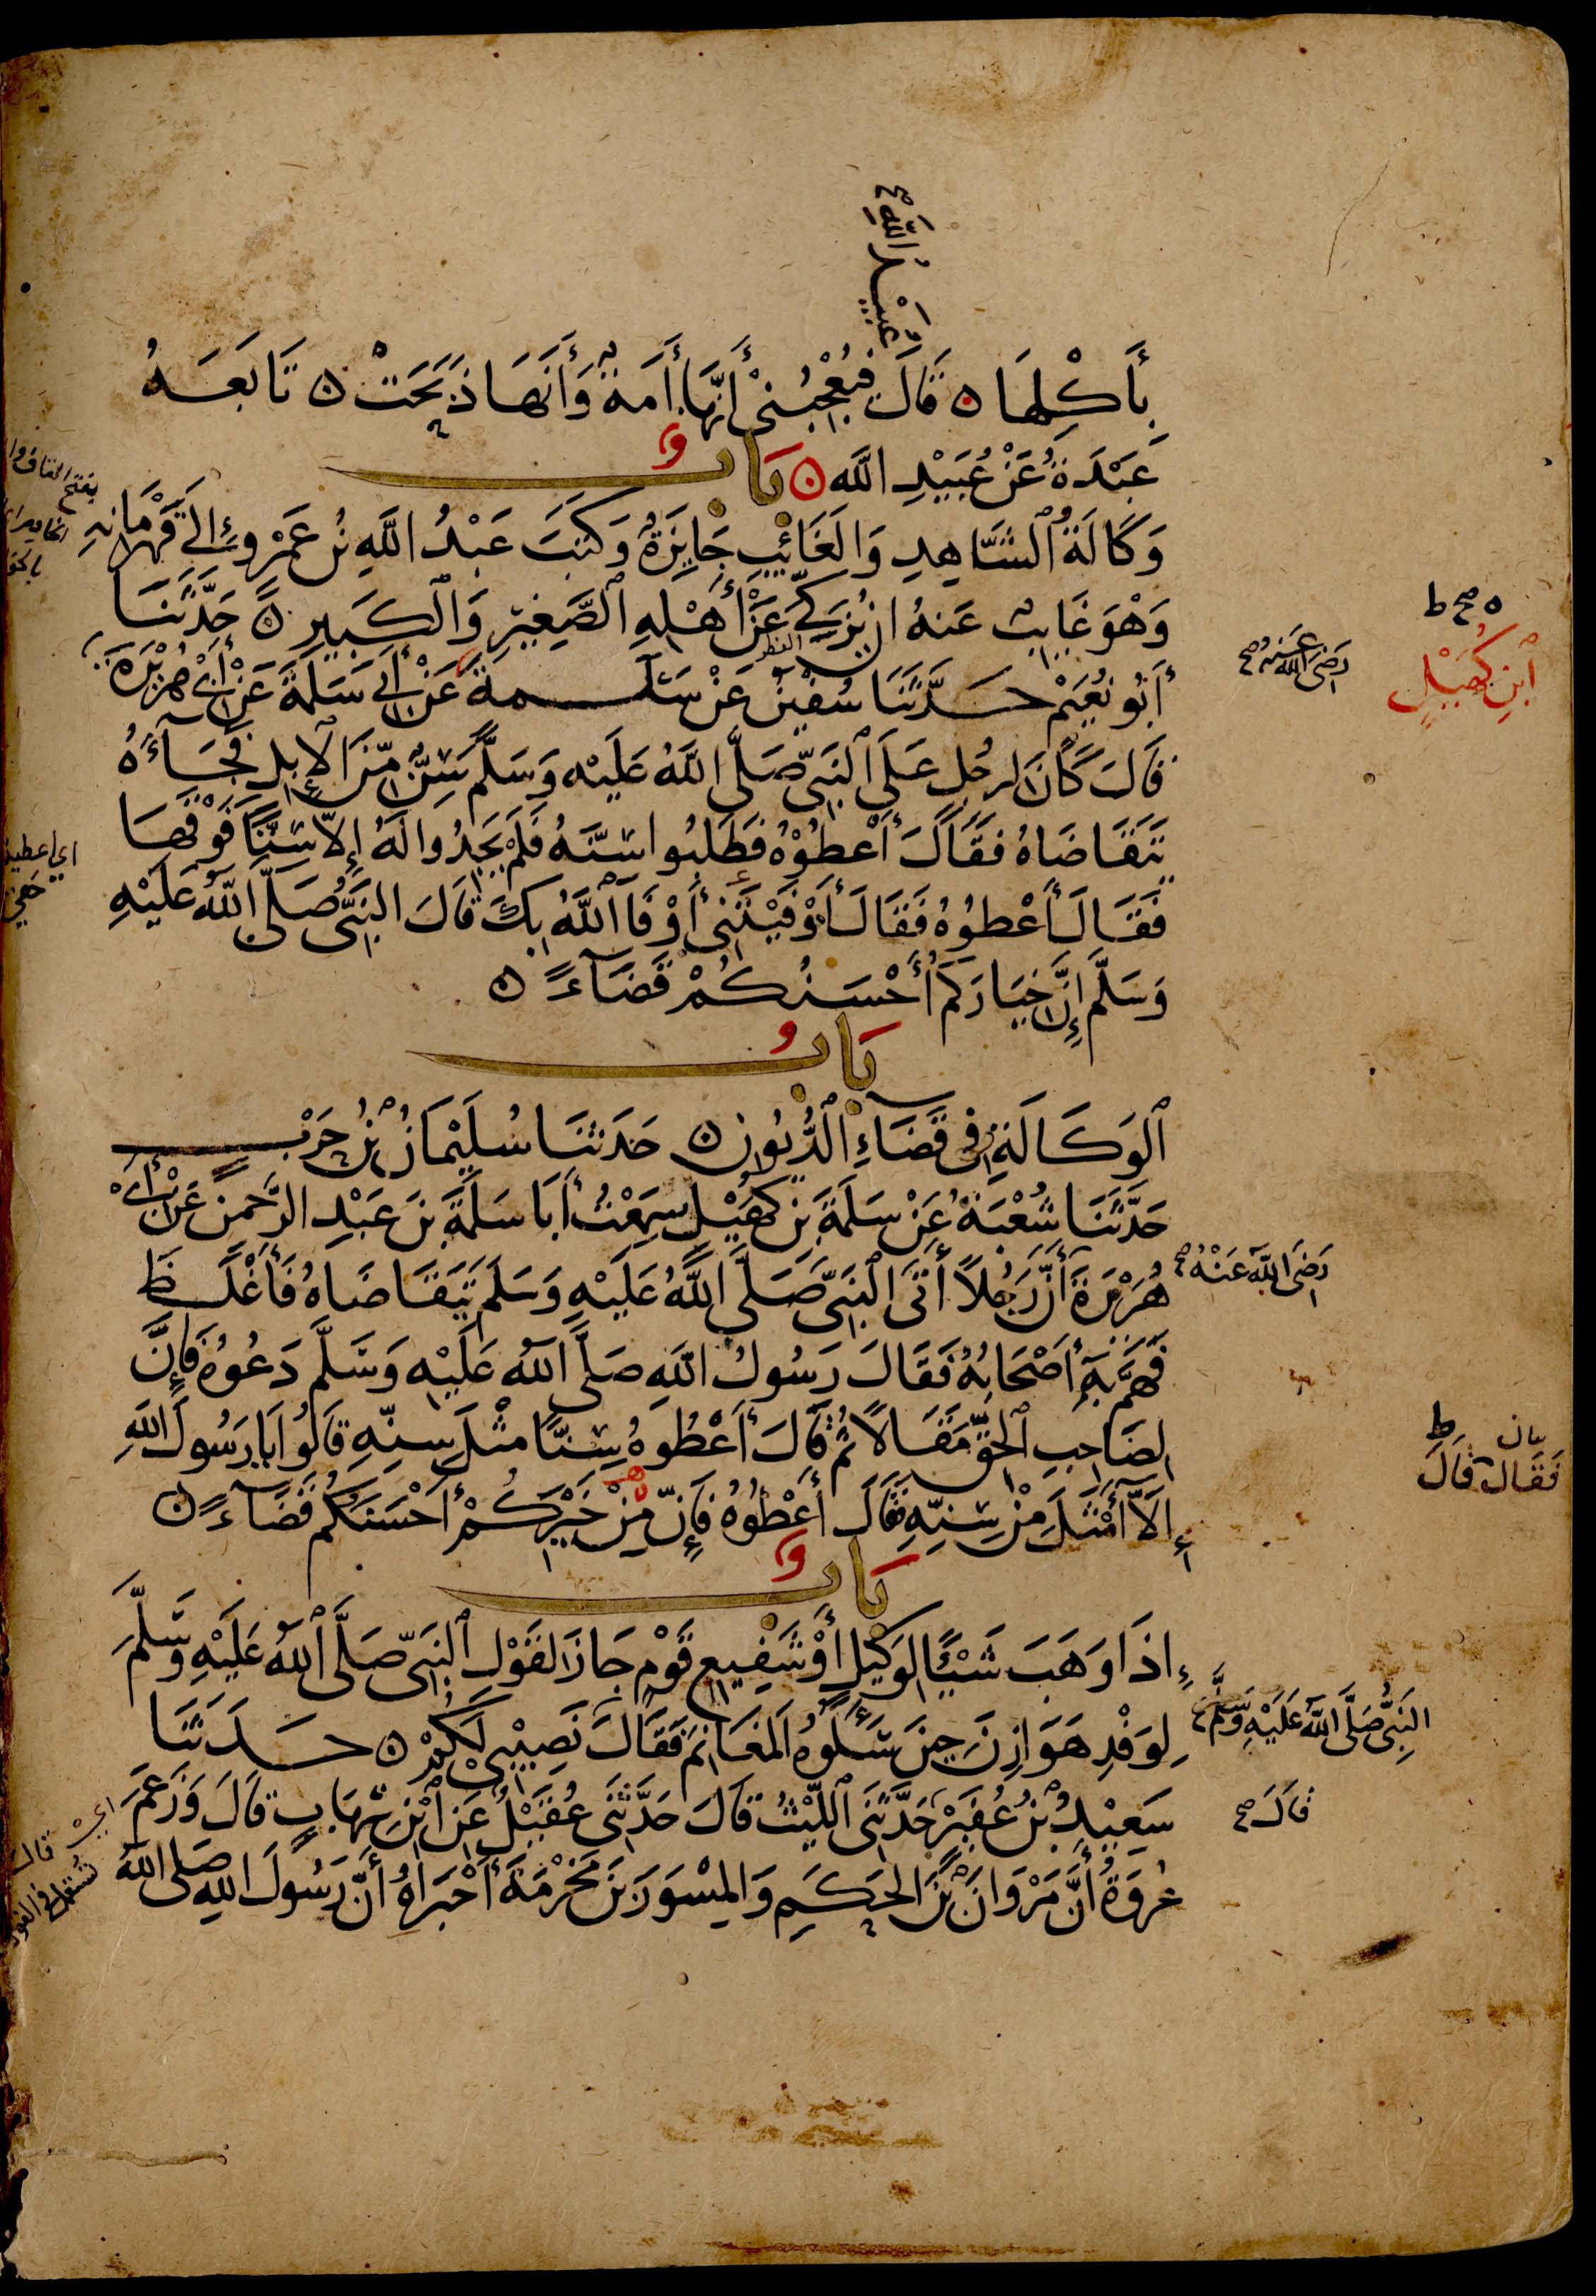 عُبَيْدُ اللَّهِ صح
بِأَكْلِهَا ۝ قَالَ فَيُعْجِبُنِي أَنَّهَا أَمَةٌ وَأَنَّهَا ذَبَحَتْ ۝ تَابَعَهُ
عَبْدَةُ عَنْ عُبَيْدِ اللَّه ۝ بَابٌ
وَكَالَةُ الشَّاهِدِ وَالغَائِبِ جَايِزَةٌ وَكَتَبَ عَبْدُ اللَّهِ بْنُ عَمْرٍو إِلَى قَهْرَمَانِهِ
وَهْوَ غَايِبٌ عَنهُ ان يُزَكِّيَ عَنْ أَهْلِهِ الصَّغِيْرِ وَالْكَبِيرِ ۝ حَدَّثَنَا
أَبُو نُعَيْمٍ حَدَّثَنَا سُفْيَنُ عَنْ سَلَمةَ عَنْ أَبِي سَلَمَةَ عَنْ أَبِي هُرَيْرَةَ
رَضِيَ اللَّهُ عَنْهُ صح
ه صح ط
ابْنِ كُهَيْلٍ
قَالَ كَانَ لِرَجُلٍ عَلَى النَّبِيِّ صَلَّى اللَّهُ عَلَيْهِ وَسَلَّمَ سِنٌّ مِّنَ الْإِبِلِ فَجَآءَهُ
يَتَقَاضَاهُ فَقَالَ أَعْطُوْهُ فَطَلَبُوا سِنَّهُ فَلَمْ يَجِدُوا لَهُ إِلَّا سِنًّا فَوْقَهَا
فَقَالَ أَعْطُوُهُ فَقَالَ أَوْفَيْتَنِي أَوْفَا اللَّهُ بِكَ قَالَ النَّبِيُّ صَلَّى اللَّهُ عَلَيْهِ
وَسَلَّمَ إِنَّ خِيَارَكُمْ أَحْسَنُكُمْ قَضَآءً ۝
بَابُ
الْوَكَالَةِ فِي قَضَاءِ الدُّيُونِ ۝ حَدَثَنَا سُلَيْمَانُ بْنُ حَرْبٍ
حَدَّثَنَا شُعْبَةُ عَنْ سَلَمَةَ بْنِ كُهَيْلٍ سَمِعْتُ أَبَا سَلَمَةَ بنَ عَبْدِ الرَّحْمنِ عَنْ أَبِي
هُرَيْرَةَ أَنَّ رَجُلًا أَتَى النَّبِيَّ صَلَّى اللَّهُ عَلَيْهِ وَسَلَّمَ يَتَقَاضَاهُ فَأَغْلَظَ
رَضِيَ اللَّهُ عَنْهُ صح
فَهَمَّ بِهِ أَصْحَابُهُ فَقَالَ رَسُولُ اللَّهِ صَلَّى اللَّهُ عَلَيْهِ وَسَلَّمَ دَعُوُهُ فَإِنَّ
لِصَاحِبِ الْحَقِّ مَقَالًا ثُمَّ قَالَ أَعْطُوهُ سِنًّا مِثْلَ سِنِّهِ قَالُوا يَا رَسُولَ اللَّهِ
فَقَالَ قَالَ ط
إِلَّا أَمْثَلَ مِنْ سِنِّهِ قَالَ أَعْطُوُهُ فَإِنَّ مِنْ خَيْرِكُمْ أَحْسَنَكُمْ قَضَآءً ۝
بَابٌ
إِذَا وَهَبَ شَيْئًا لِوَكِيلٍ أَوْ شَفِيعِ قَوْمٍ جَازَ لِقَوْلِ النَّبِيِّ صَلَّى اللَّهُ عَلَيْهِ وَسَلَّمَ
لِوَفْدِ هَوَازِنَ حِينَ سَأَلُوهُ الْمَغَانِمَ فَقَالَ نَصِيْبِي لَكُمْ ۝ حَدَثَنَا
النَّبِيُّ صَلَّى اللَّهُ عَلَيْهِ وَسَلَّمَ
سَعِيْدُ بْنُ عُفَيْرٍ حَدَّثَنِي اللَّيْثُ قَالَ حَدَّثَنِي عُقَيْلٌ عَنِ ابْنِ شِهَابٍ قَالَ وَزَعَمَ
قَالَ صح
عُرْوَةُ أَنَّ مَرْوَانَ بْنَ الْحَكَمِ وَالْمِسْوَرَ بنَ مَخْرَمَةَ أَخْبَرَاهُ أَنَّ رَسُولَ اللَّهِ صَلَى اللَّهُ